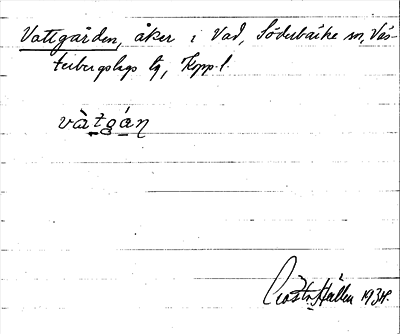 Vattgården, åker i Vad, Söderbärke sn, Väs-
terbergslags tg, Kopp. l.
vàtgán
Hällen 1934.